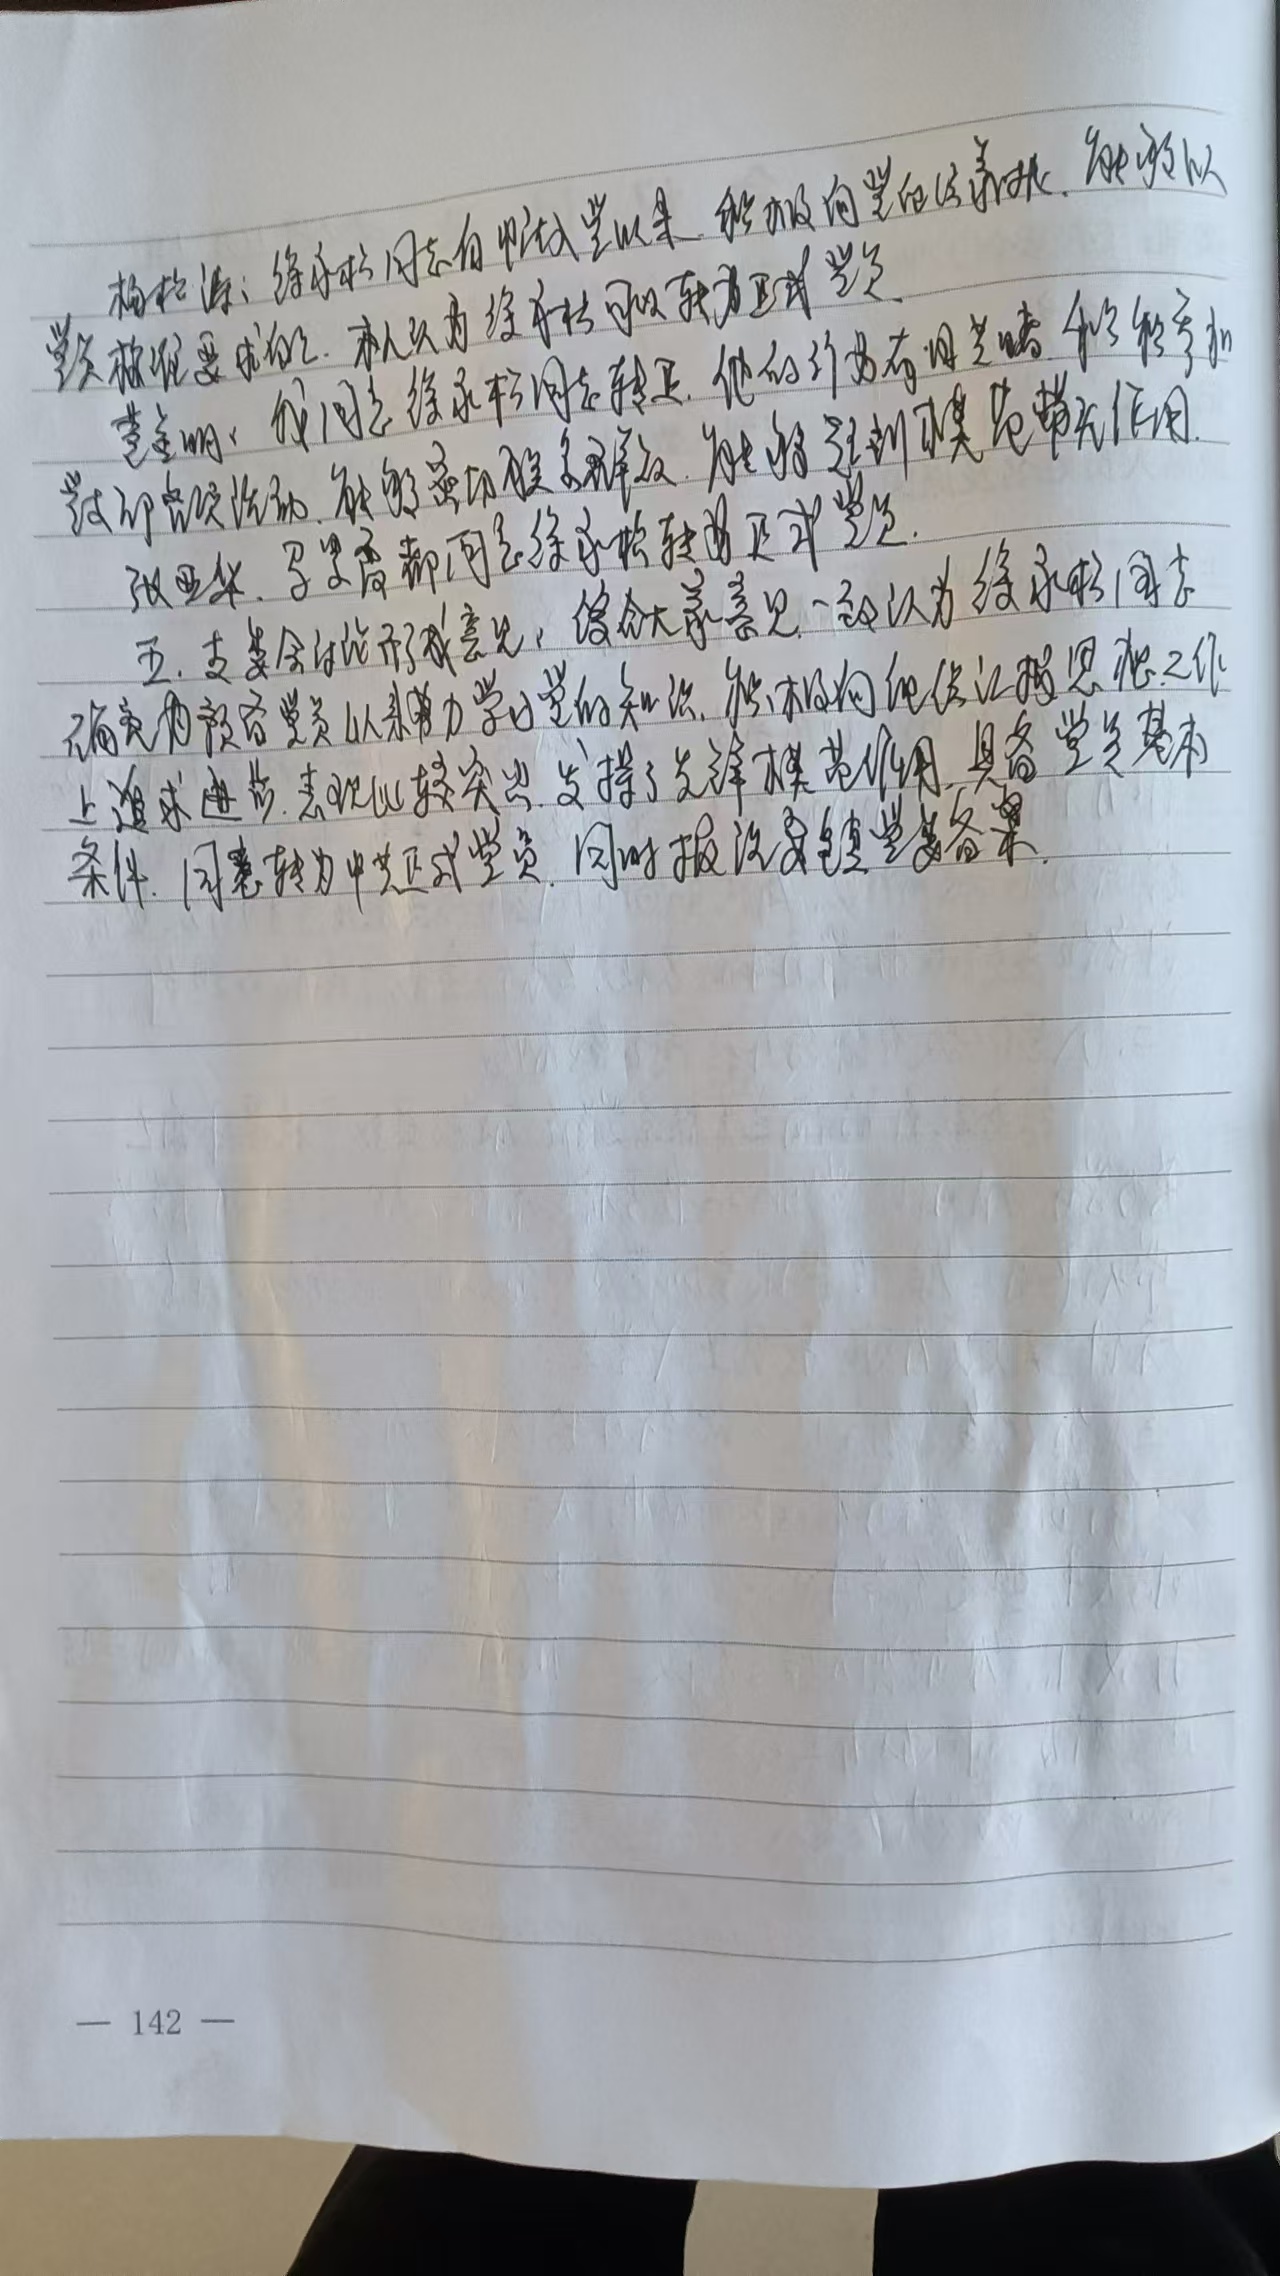 杨松涛：徐永松同志自申请入党以来，积极向党组织靠拢，能够以
党员标准要求自己，本人认为徐永松可以转为正式党员。
金明：我同意徐永松同志转正，他的行为有目共睹，积极参加
党支部各项活动，能够密切联系群众，能够起到模范带头作用。
张亚华、 都同意徐永松转为正式党员。
五、支委会讨论形成意见：综合大家意见，一致认为徐永松同志
确定为预备党员以来努力学习党的知识，积极向组织汇报思想，工作
上追求进步，表现比较突出，发挥了先锋模范作用，具备党员基本
条件，同意转为中共正式党员，同时报 镇党委备案。
— 142 —